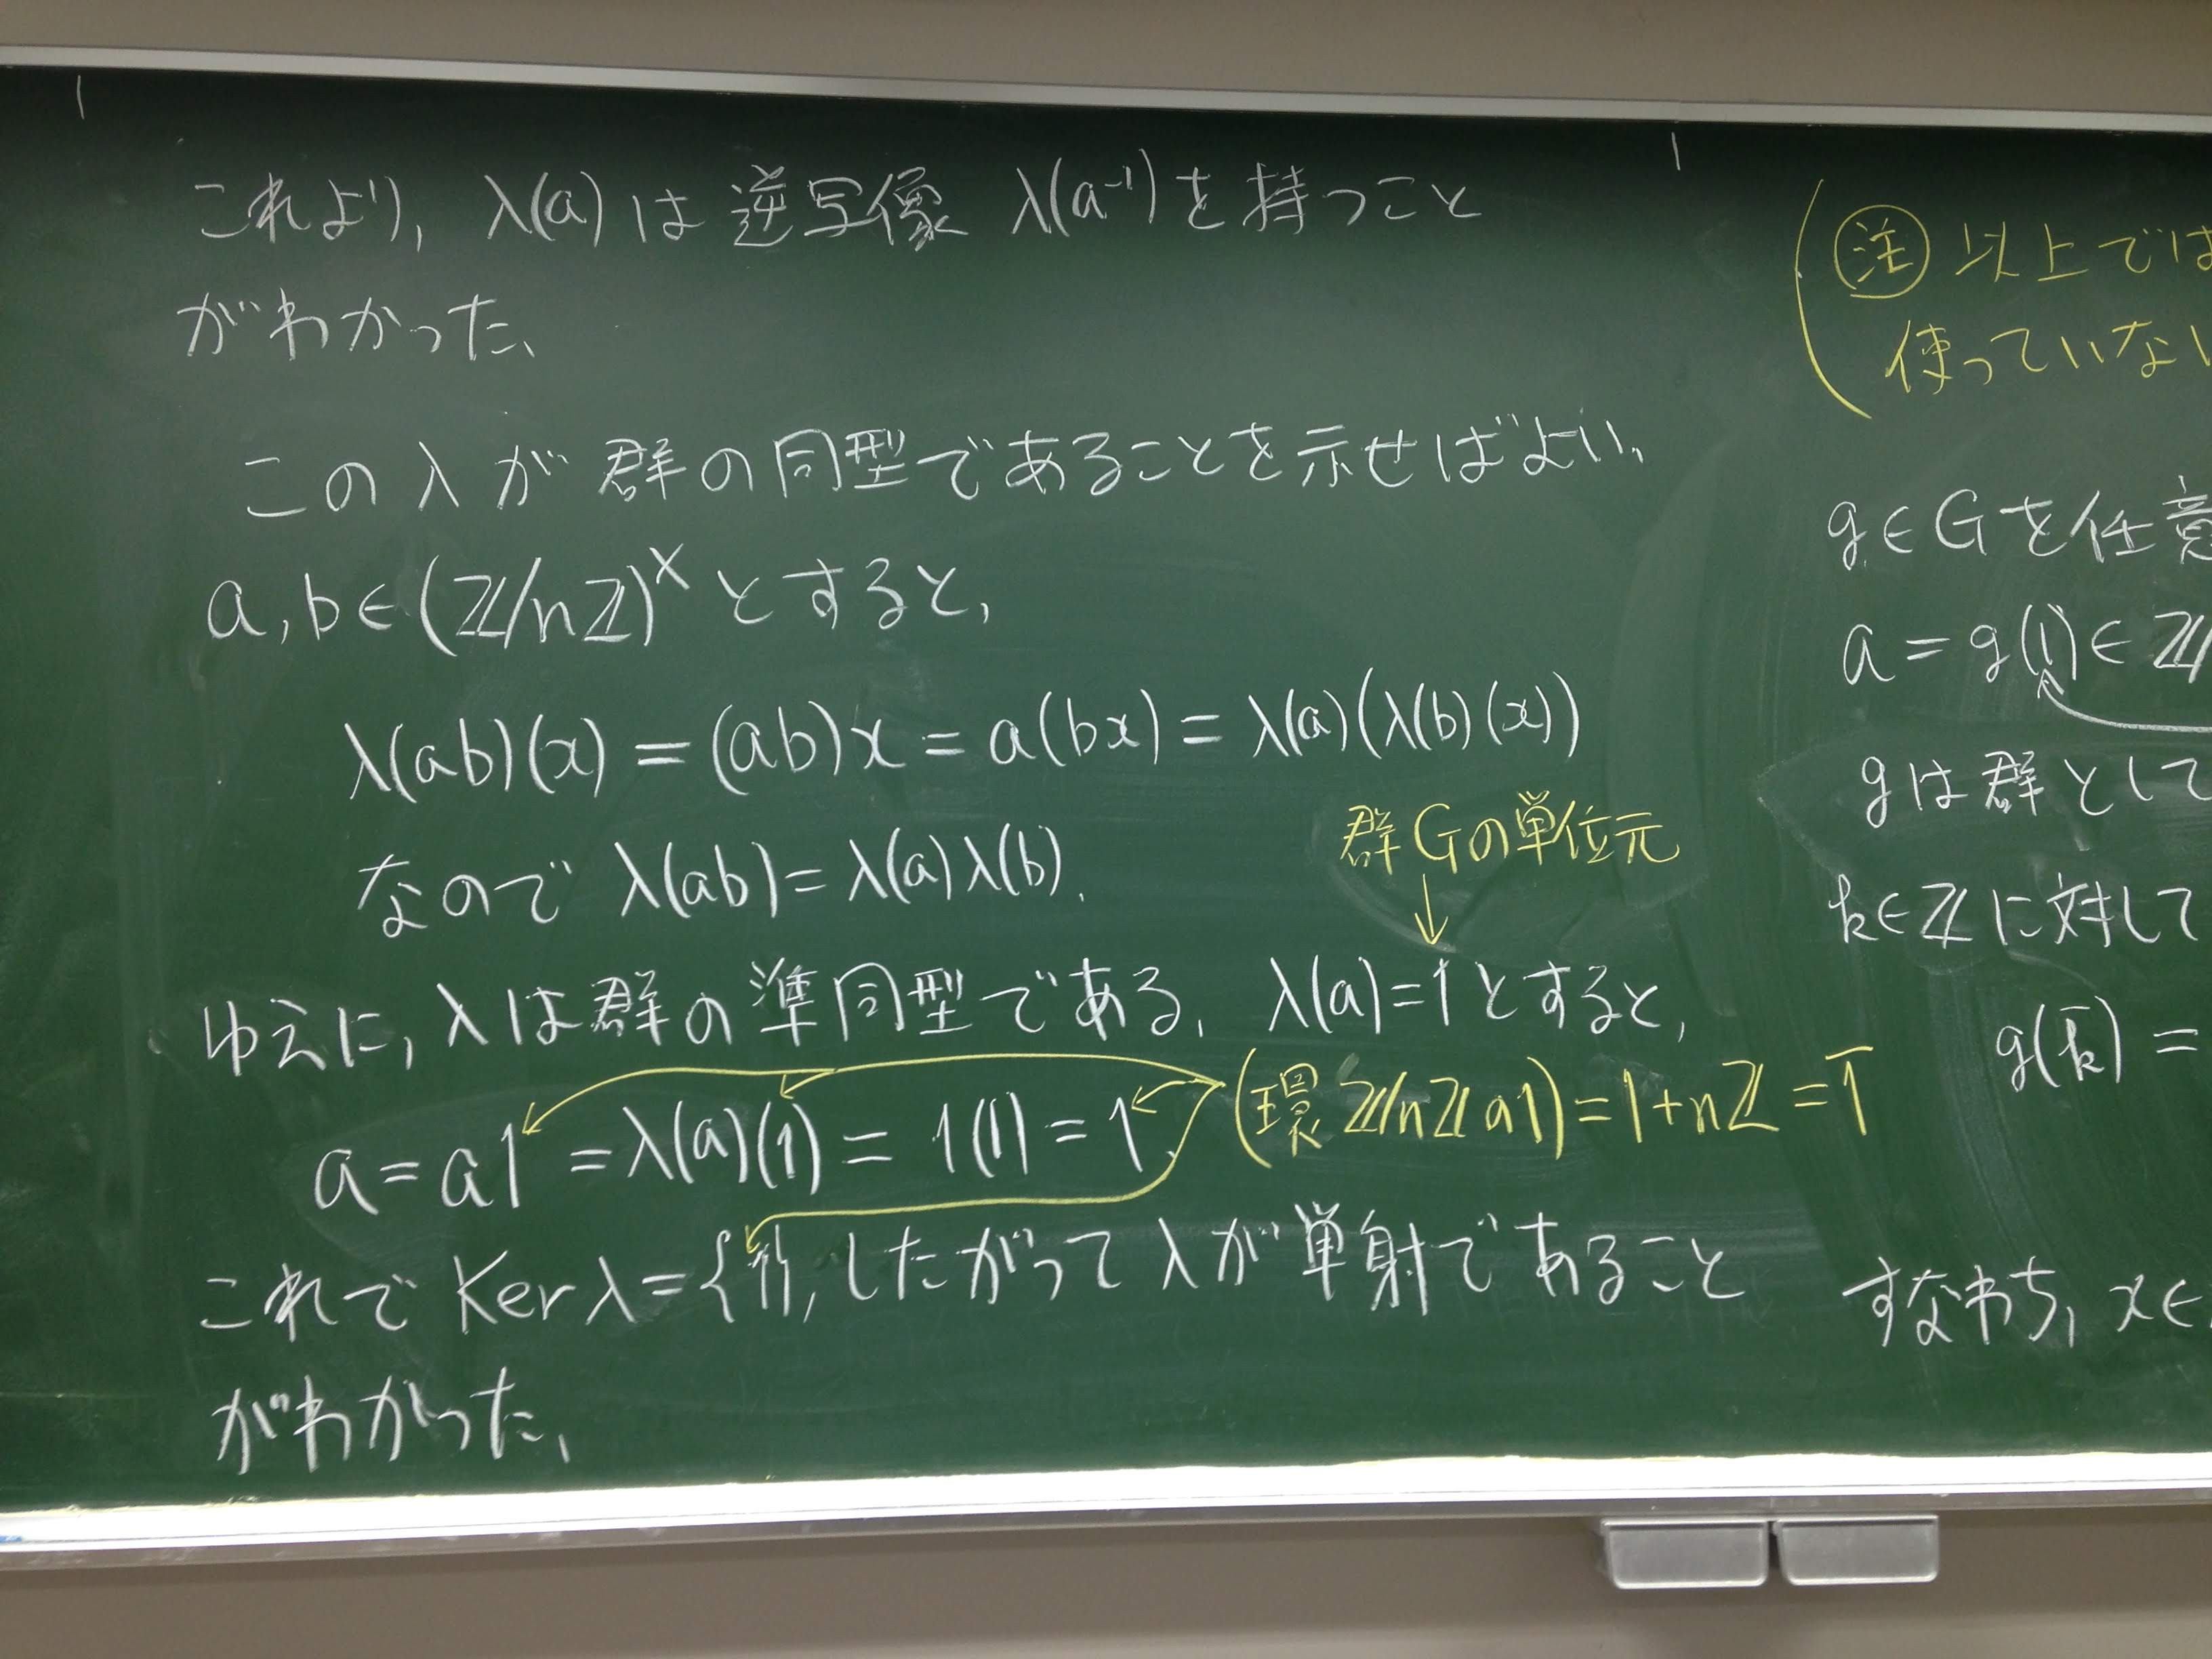 これより, λ(a) は 逆写像 λ(a⁻¹) を 持つこと
がわかった.
この λ が 群の同型であることを示せばよい.
a, b ∈ (ℤ/nℤ)ˣ とすると,
λ(ab)(x) = (ab)x = a(bx) = λ(a)(λ(b)(x))
なので λ(ab) = λ(a)λ(b).
群Gの単位元
↓
ゆえに, λは群の準同型である. λ(a)=1とすると,
a = a1 = λ(a)(1) = 1(1) = 1.
(環 ℤ/nℤ の1) = 1+nℤ = 1̅
これで Ker λ = {1}, したがって λが単射であること
がわかった.
(注 以上では
使っていない
g ∈ G を任意
a = g(1) ∈ ℤ/
gは群として
k∈ℤに対して
g(k̅) =
すなわち, x∈